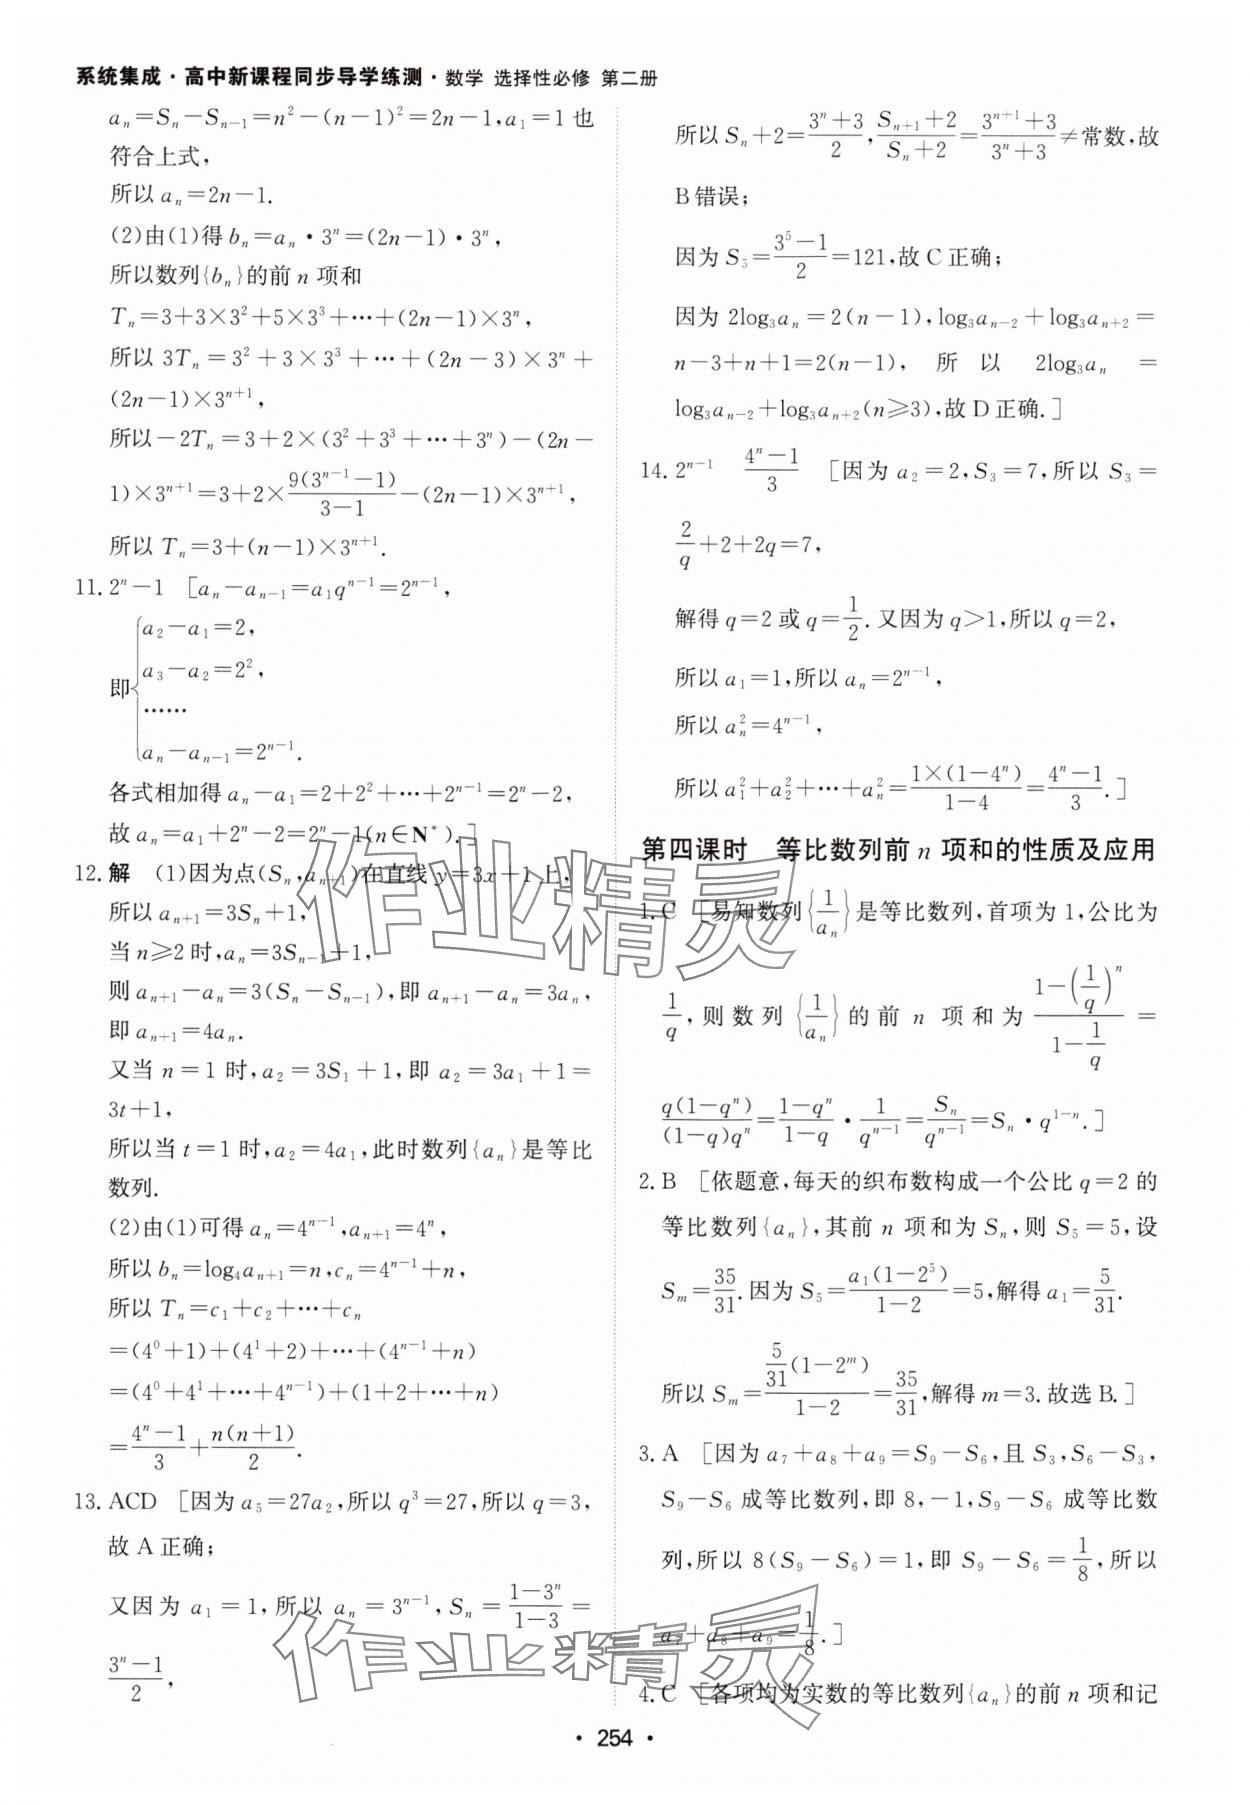 系统集成·高中新课程同步导学练测·数学 选择性必修 第二册
aₙ=Sₙ-Sₙ₋₁=n²-(n-1)²=2n-1,a₁=1也
符合上式,
所以aₙ=2n-1.
(2)由(1)得bₙ=aₙ·3ⁿ=(2n-1)·3ⁿ,
所以数列{bₙ}的前n项和
Tₙ=3+3×3²+5×3³+⋯+(2n-1)×3ⁿ,
所以3Tₙ=3²+3×3³+⋯+(2n-3)×3ⁿ+
(2n-1)×3ⁿ⁺¹,
所以-2Tₙ=3+2×(3²+3³+⋯+3ⁿ)-(2n-
1)×3ⁿ⁺¹=3+2×9(3ⁿ⁻¹-1)/(3-1)-(2n-1)×3ⁿ⁺¹,
所以Tₙ=3+(n-1)×3ⁿ⁺¹.
11. 2ⁿ-1 [aₙ-aₙ₋₁=a₁qⁿ⁻¹=2ⁿ⁻¹,
即{a₂-a₁=2,
a₃-a₂=2²,
⋯⋯
aₙ-aₙ₋₁=2ⁿ⁻¹.
各式相加得aₙ-a₁=2+2²+⋯+2ⁿ⁻¹=2ⁿ-2,
故aₙ=a₁+2ⁿ-2=2ⁿ-1(n∈N*).]
12. 解 (1)因为点(Sₙ,aₙ₊₁)在直线y=3x+1上,
所以aₙ₊₁=3Sₙ+1,
当n≥2时,aₙ=3Sₙ₋₁+1,
则aₙ₊₁-aₙ=3(Sₙ-Sₙ₋₁),即aₙ₊₁-aₙ=3aₙ,
即aₙ₊₁=4aₙ.
又当n=1时,a₂=3S₁+1,即a₂=3a₁+1=
3t+1,
所以当t=1时,a₂=4a₁,此时数列{aₙ}是等比
数列.
(2)由(1)可得aₙ=4ⁿ⁻¹,aₙ₊₁=4ⁿ,
所以bₙ=log₄aₙ₊₁=n,cₙ=4ⁿ⁻¹+n,
所以Tₙ=c₁+c₂+⋯+cₙ
=(4⁰+1)+(4¹+2)+⋯+(4ⁿ⁻¹+n)
=(4⁰+4¹+⋯+4ⁿ⁻¹)+(1+2+⋯+n)
=(4ⁿ-1)/3+n(n+1)/2.
13. ACD [因为a₅=27a₂,所以q³=27,所以q=3,
故A正确;
又因为a₁=1,所以aₙ=3ⁿ⁻¹,Sₙ=(1-3ⁿ)/(1-3)=
(3ⁿ-1)/2,
所以Sₙ+2=(3ⁿ+3)/2,(Sₙ₊₁+2)/(Sₙ+2)=(3ⁿ⁺¹+3)/(3ⁿ+3)≠常数,故
B错误;
因为S₅=(3⁵-1)/2=121,故C正确;
因为2log₃aₙ=2(n-1),log₃aₙ₋₂+log₃aₙ₊₂=
n-3+n+1=2(n-1),所以2log₃aₙ=
log₃aₙ₋₂+log₃aₙ₊₂(n≥3),故D正确.]
14. 2ⁿ⁻¹ (4ⁿ-1)/3 [因为a₂=2,S₃=7,所以S₃=
2/q+2+2q=7,
解得q=2或q=1/2.又因为q>1,所以q=2,
所以a₁=1,所以aₙ=2ⁿ⁻¹,
所以aₙ²=4ⁿ⁻¹,
所以a₁²+a₂²+⋯+aₙ²=1×(1-4ⁿ)/(1-4)=(4ⁿ-1)/3.]
第四课时 等比数列前n项和的性质及应用
1. C [易知数列{1/aₙ}是等比数列,首项为1,公比为
1/q,则数列{1/aₙ}的前n项和为(1-(1/q)ⁿ)/(1-1/q)=
q(1-qⁿ)/((1-q)qⁿ)=(1-qⁿ)/(1-q)·1/qⁿ⁻¹=Sₙ/qⁿ⁻¹=Sₙ·q¹⁻ⁿ.]
2. B [依题意,每天的织布数构成一个公比q=2的
等比数列{aₙ},其前n项和为Sₙ,则S₅=5,设
Sₘ=35/31.因为S₅=a₁(1-2⁵)/(1-2)=5,解得a₁=5/31.
所以Sₘ=(5/31(1-2ᵐ))/(1-2)=35/31,解得m=3.故选B.]
3. A [因为a₇+a₈+a₉=S₉-S₆,且S₃,S₆-S₃,
S₉-S₆成等比数列,即8,-1,S₉-S₆成等比数
列,所以8(S₉-S₆)=1,即S₉-S₆=1/8,所以
a₇+a₈+a₉=1/8.]
4. C [各项均为实数的等比数列{aₙ}的前n项和记
·254·
作业精灵
作业精灵